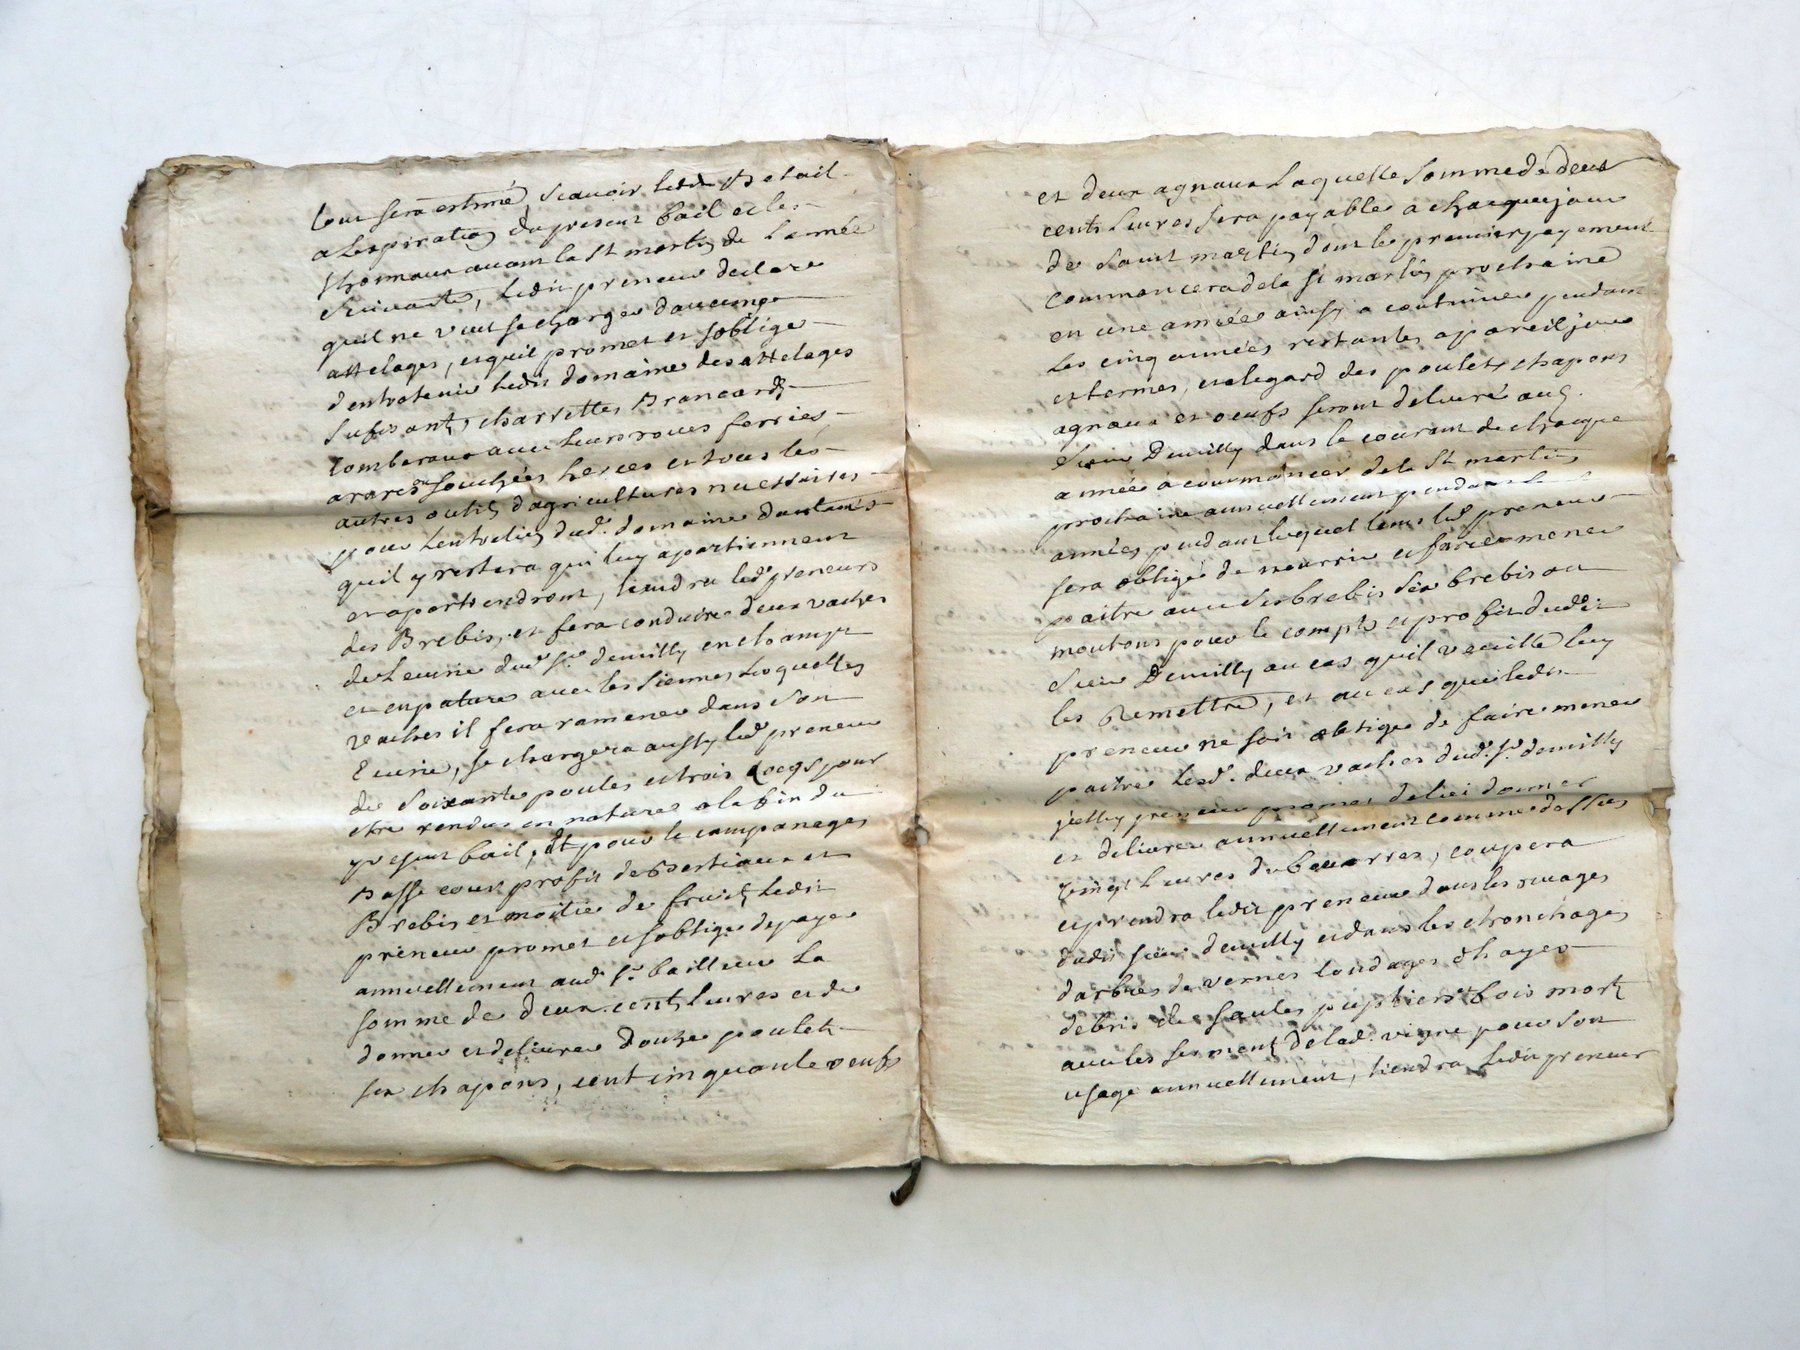 tout sera estimé, scauoir ledit Betail
a Lexpiration du present bail et les
thonneaux auant la St martin de Lannée
Suivante, Ledit preneur declare
quil ne veut se charger daucuns
attelages, et quil promet et soblige
dentretenir ledit domaine des attelages
sufisants charrettes Brancards
tomberaux auec leurs roues ferrées
arares souchées herces et tous les
autres outils dagricultures necessaires
pour Lentretien dud. domaine dautant
quil y restera qui luy apartiennent
et apartiendront, tiendra led. preneur
des Brebis, et fera conduire deux vaches
de Lecurie dud. Sr. deuilly en champt
et en pature auec les siennes Lesquelles
vaches il fera ramener dans son
Ecurie, se chargera aussy led. preneur
de soixante poules et trois Coegs pour
etre rendus en nature a la fin du
present bail, et pour le campanages
Basse court profit de Bestiaux et
Brebis et moitié de fruits Ledit
preneur promet et soblige de payer
annuellement aud. Sr. bailleur La
somme de deux cents liures et de
donner et deliurer douze poulets
six chapons, cent cinquante oeufs
et deux agnaux Laquelle somme de deux
cents liures sera payable a chacque jour
de saint martin dont le premier payement
commancera de la St martin prochaine
en une année ainsy a continuer pendant
les cinq années restantes a pareil jour
et termes, et a legard des poulets chapons
agnaux et oeufs seront deliuré aud.
Sieur Deuilly dans le courant de chacque
année a commancer de la St martin
prochaine annuellement pendant
années pendant lequel tems led. preneur
sera obligé de nourrir et faire mener
paitre auec ses brebis six brebis ou
moutons pour le compte et profit dudit
Sieur Deuilly au cas quil veuille luy
les Remettre, et au cas que ledit
preneur ne soit obligé de faire mener
paitre Lesd. deux vaches dud. Sr. deuilly
preneur promet de lui donner
et deliurer annuellement comme dessus
vingt liures de beurres, coupera
et prendra ledit preneur dans les
dudit sieur deuilly et dans les etronchages
darbres de vernes tondages
debris de saules puptiers et bois morts
auec les serments de lad. vigne pour son
usage annuellement, tiendra ledit preneur